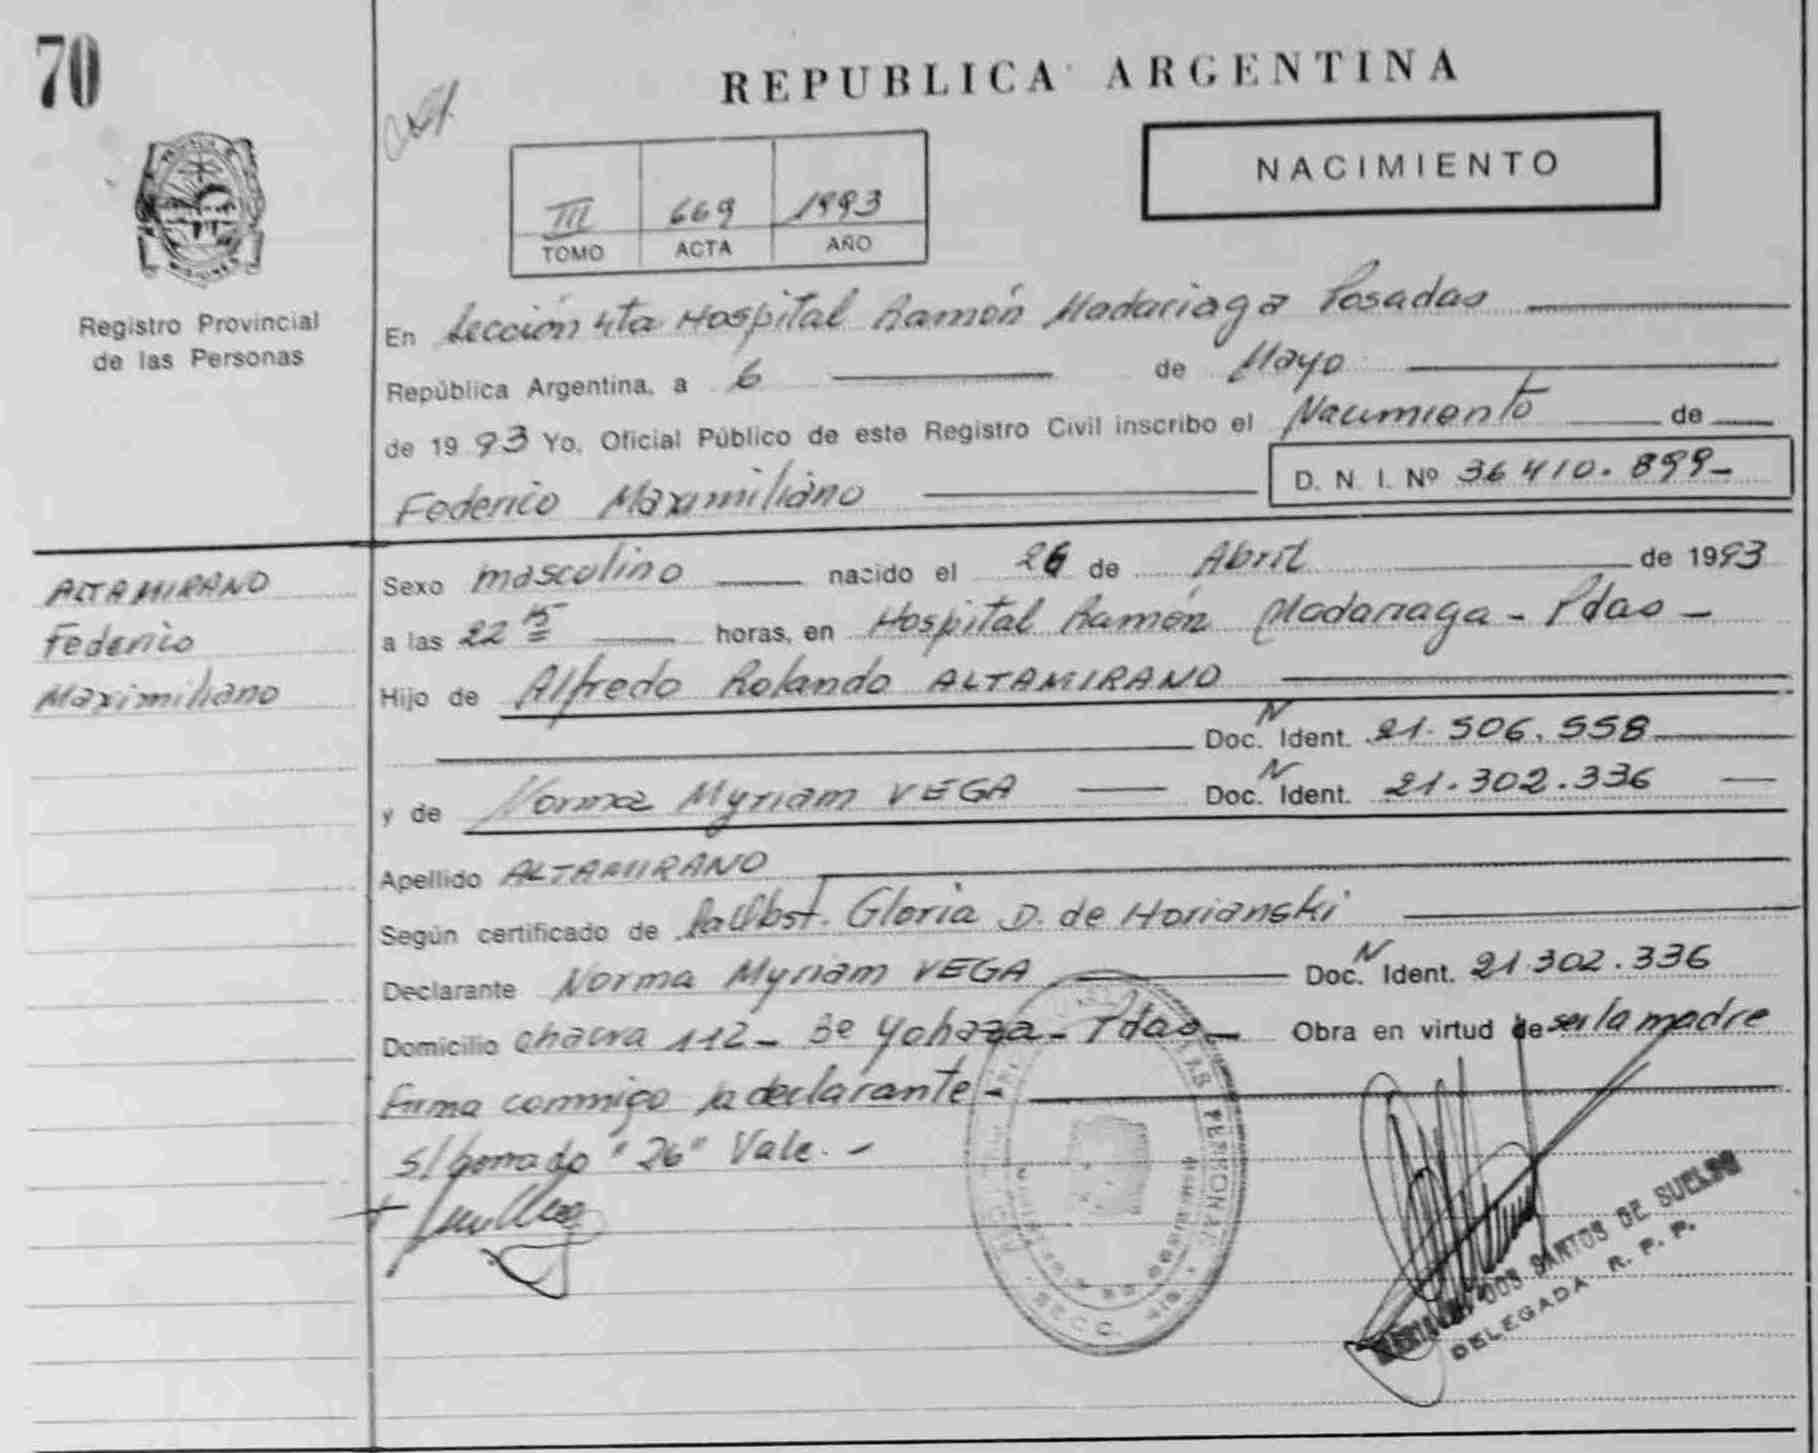 70
REPUBLICA ARGENTINA
NACIMIENTO
III 669 1993
TOMO ACTA AÑO
MISIONES
Registro Provincial
de las Personas
En Sección 4ta Hospital Ramón Madariaga Posadas
República Argentina, a 6 de Mayo
de 1993 Yo, Oficial Público de este Registro Civil inscribo el Nacimiento de
Federico Maximiliano D. N. I. Nº 36 410. 899-
ALTAMIRANO
Federico
Maximiliano
Sexo masculino nacido el 26 de Abril de 1993
a las 22 15 horas, en Hospital Ramón Madariaga - Pdas -
Hijo de Alfredo Rolando ALTAMIRANO
Doc. N Ident. 21. 506. 558
y de Norma Myriam VEGA Doc. N Ident. 21. 302. 336
Apellido ALTAMIRANO
Según certificado de la Obst. Gloria D. de Horianski
Declarante Norma Myriam VEGA Doc. N Ident. 21 302. 336
Domicilio chacra 112 - Bº Yohasa - Pdas - Obra en virtud de ser la madre
Firma conmigo la declarante -
s/ borrado "26" Vale. -
DOS SANTOS DE SUELDO
DELEGADA R. P. P.